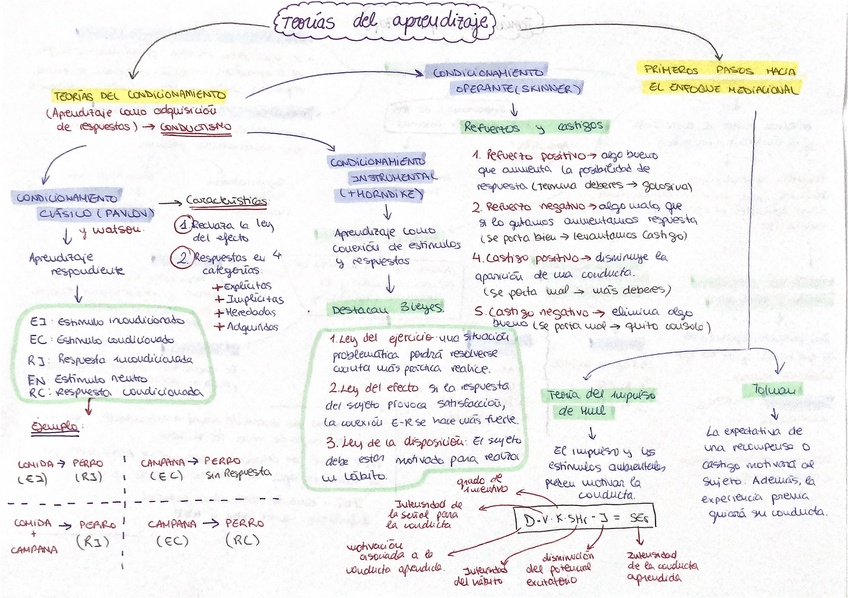 Teorías del aprendizaje
TEORÍAS DEL CONDICIONAMIENTO
(Aprendizaje como adquisición
de respuestas) → CONDUCTISMO
CONDICIONAMIENTO
CLÁSICO (PAVLOV)
y Watson.
Aprendizaje
respondiente
EI: Estímulo incondicionado
EC: Estímulo condicionado
RI: Respuesta incondicionada
EN Estímulo neutro
RC: Respuesta condicionada
Ejemplo:
COMIDA → PERRO
(EI) (RI)
CAMPANA → PERRO
(EC) sin Respuesta
COMIDA → PERRO
+
CAMPANA (RI)
CAMPANA → PERRO
(EC) (RC)
→ Características:
1. Rechaza la ley
del efecto
2. Respuestas en 4
categorías:
+ Explícitas
+ Implícitas
+ Heredadas
+ Adquiridas
CONDICIONAMIENTO
INSTRUMENTAL
(THORNDIKE)
Aprendizaje como
conexión de estímulos
y respuestas
Destacan 3 leyes.
1. Ley del ejercicio: una situación
problemática podrá resolverse
cuanta más práctica realice.
2. Ley del efecto: si la respuesta
del sujeto provoca satisfacción,
la conexión E-R se hace más fuerte.
3. Ley de la disposición: El sujeto
debe estar motivado para realizar
un hábito.
CONDICIONAMIENTO
OPERANTE (SKINNER)
Refuerzos y castigos
1. Refuerzo positivo → algo bueno
que aumenta la posibilidad de
respuesta (termina deberes → golosina)
2. Refuerzo negativo → algo malo, que
si lo quitamos aumentamos respuesta
(se porta bien → levantamos castigo)
4. Castigo positivo → disminuye la
aparición de una conducta.
(se porta mal → más deberes)
5. Castigo negativo → elimina algo
bueno (se porta mal → quito consola)
PRIMEROS PASOS HACIA
EL ENFOQUE MEDIACIONAL
Teoría del impulso
de Hull
El impulso y los
estímulos ambientales
pueden motivar la
conducta.
D·V·K·SHr - I = SEr
grado de
incentivo
Intensidad de
la señal para
la conducta
motivación
asociada a la
conducta aprendida.
Intensidad
del hábito
disminución
del potencial
excitatorio
Intensidad
de la conducta
aprendida
Tolman
La expectativa de
una recompensa o
castigo motivará al
sujeto. Además, la
experiencia previa
guiará su conducta.